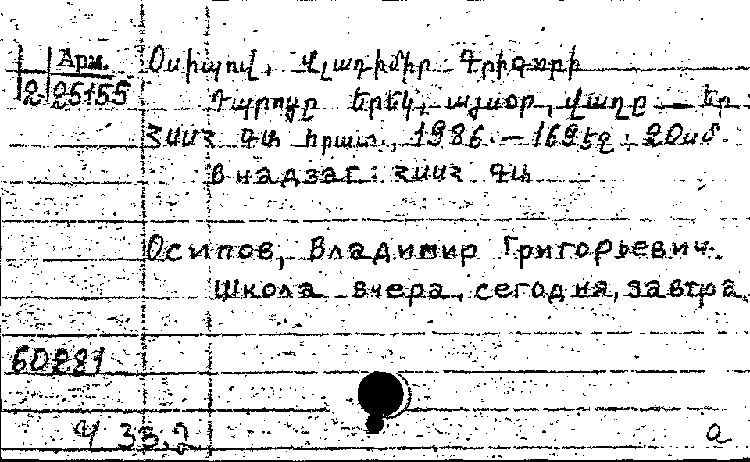 Арм.
2 25155
Օսիպով, Վլադիմիր Գրիգորի
Դպրոցը երեկ, այսօր, վաղը. — Եր.:
ՀՍՍՀ ԳԱ հրատ., 1986. — 169 էջ; 20 սմ.
В надзаг.: ՀՍՍՀ ԳԱ
Осипов, Владимир Григорьевич.
Школа вчера, сегодня, завтра.
60281
Ч 33,2
а